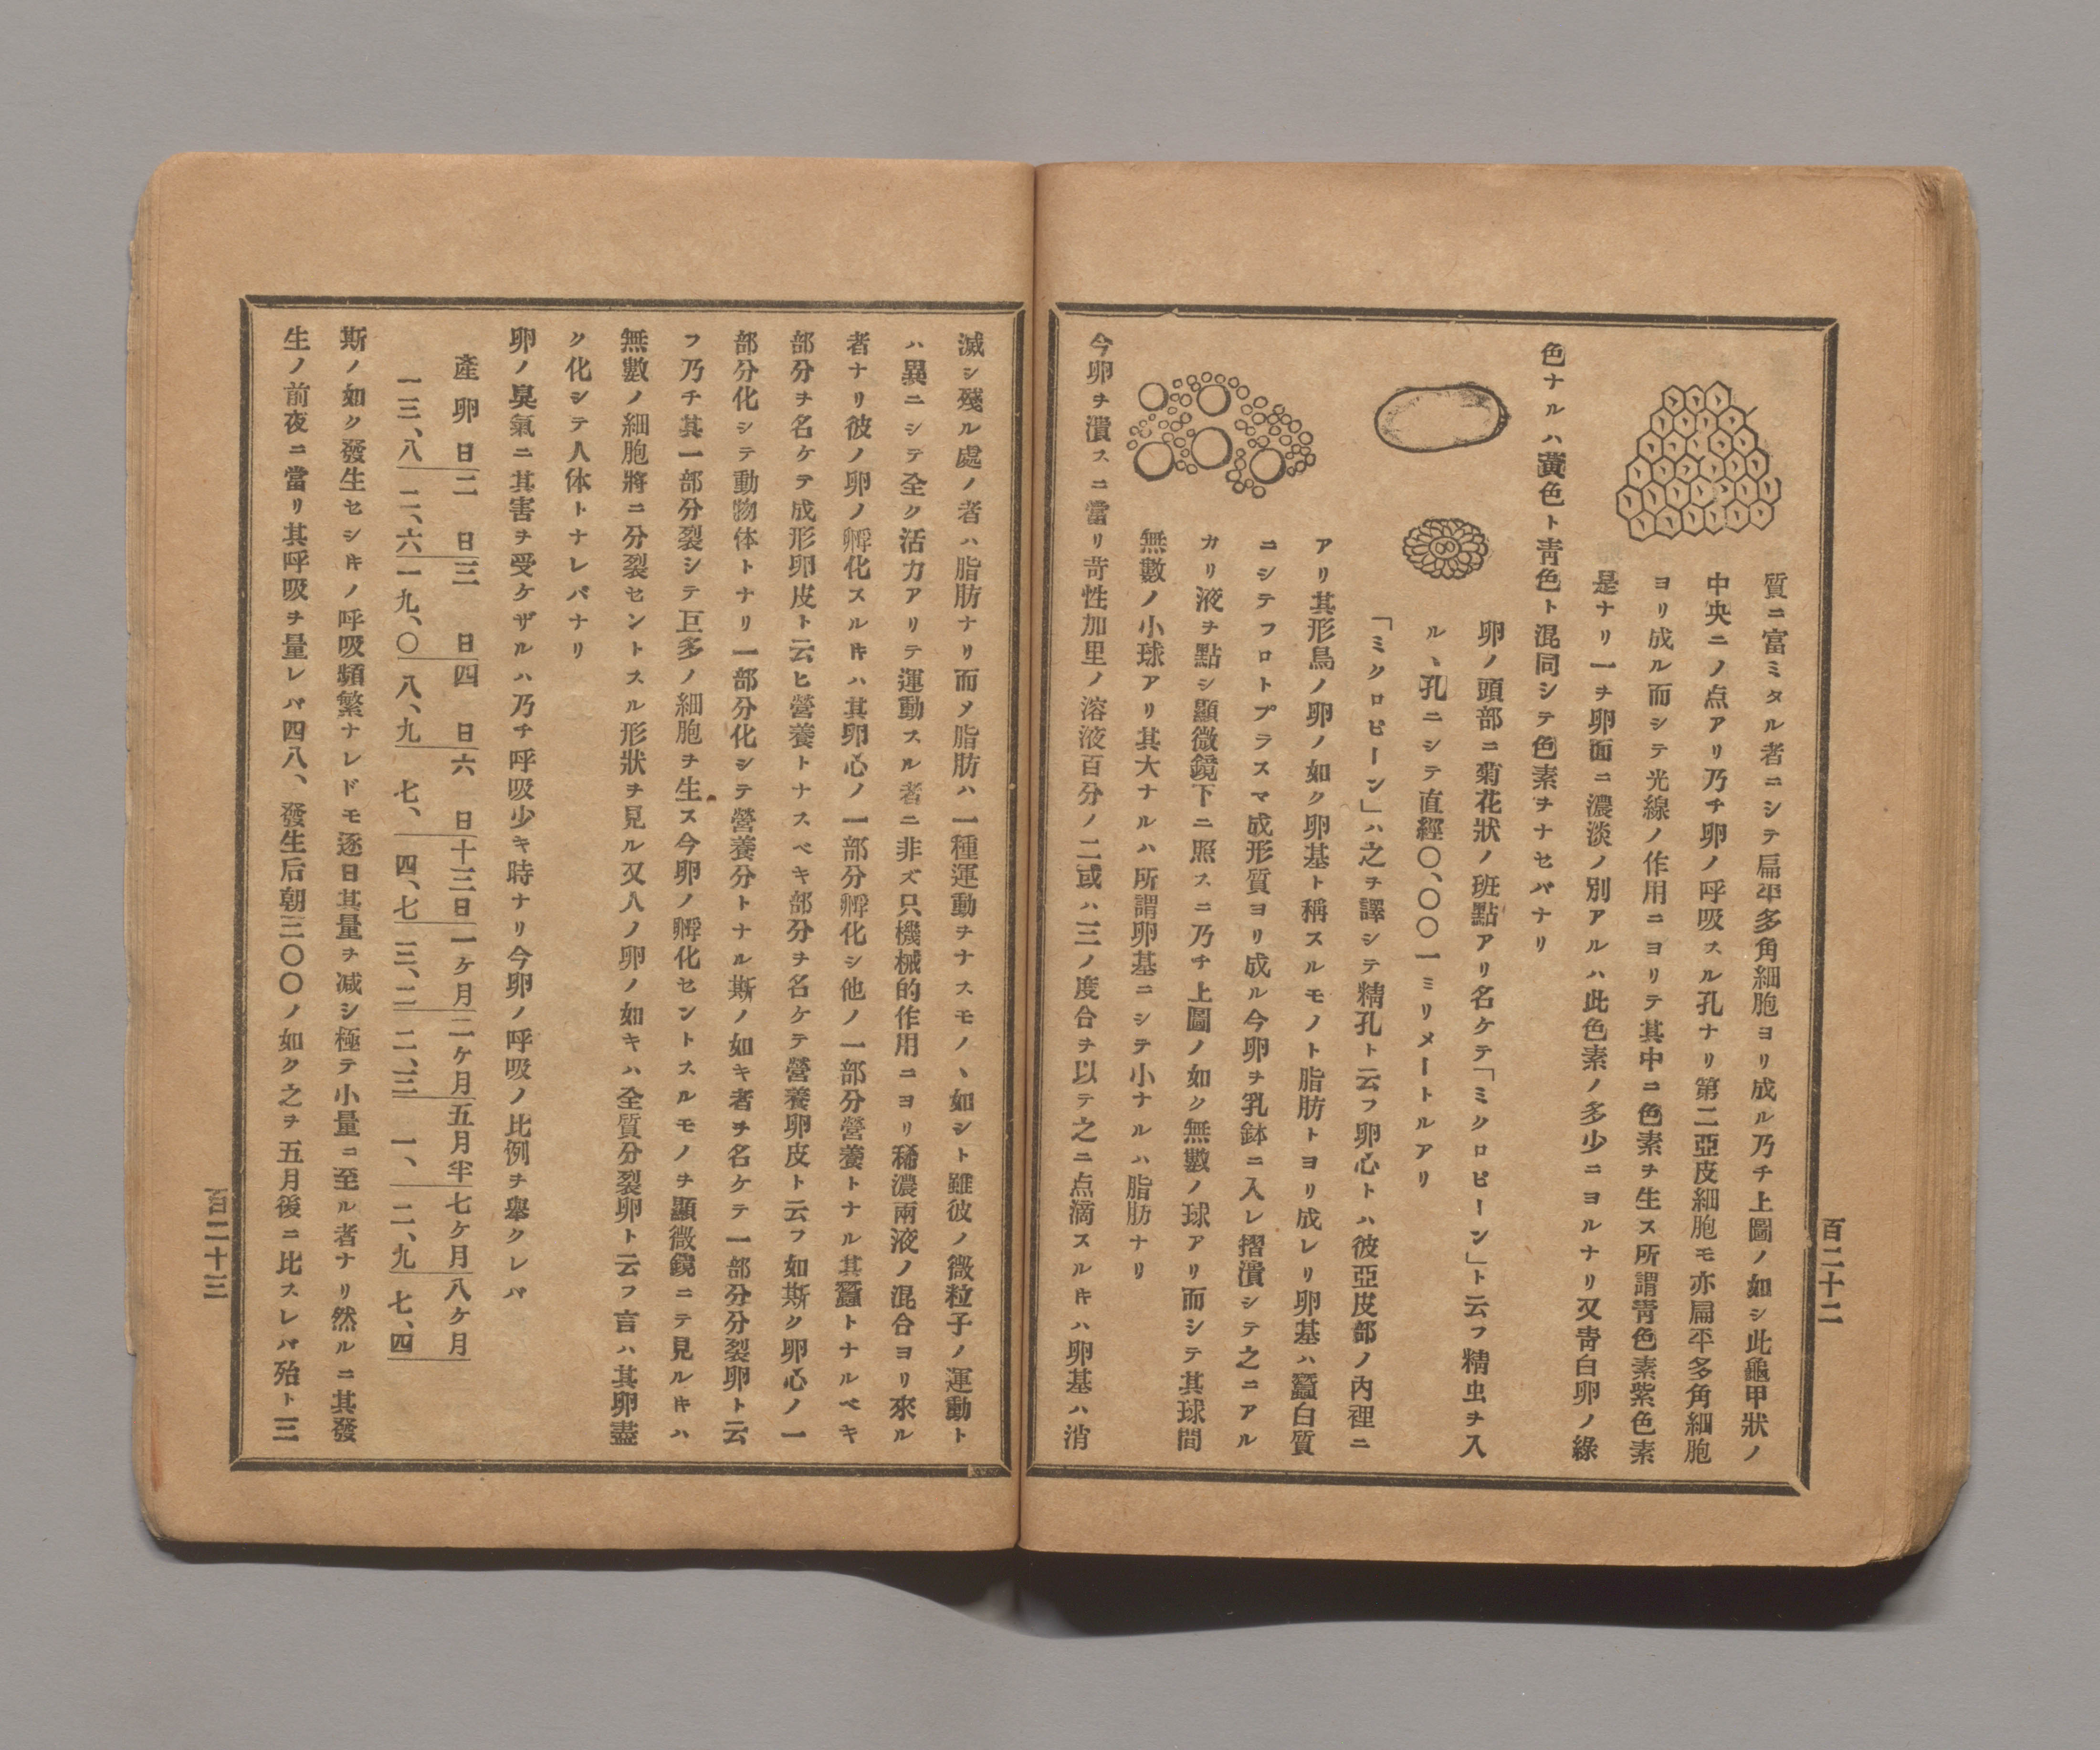 百二十二
質ニ富ミタル者ニシテ扁平多角細胞ヨリ成ル乃チ上圖ノ如シ此龜甲狀ノ
中央ニノ点アリ乃チ卵ノ呼吸スル孔ナリ第二亞皮細胞モ亦扁平多角細胞
ヨリ成ル而シテ光線ノ作用ニヨリテ其中ニ色素ヲ生ス所謂靑色素紫色素
是ナリ一ヲ卵面ニ濃淡ノ別アルハ此色素ノ多少ニヨルナリ又靑白卵ノ綠
色ナルハ黃色ト靑色ト混同シテ色素ヲナセバナリ
卵ノ頭部ニ菊花狀ノ班點アリ名ケテ「ミクロピーン」ト云フ精虫ヲ入
ル、孔ニシテ直經〇、〇〇一ミリメートルアリ
「ミクロピーン」ハ之ヲ譯シテ精孔ト云フ卵心トハ彼亞皮部ノ內裡ニ
アリ其形鳥ノ卵ノ如ク卵基ト稱スルモノト脂肪トヨリ成レリ卵基ハ蠶白質
ニシテフロトプラスマ成形質ヨリ成ル今卵ヲ乳鉢ニ入レ摺潰シテ之ニアル
カリ液ヲ點シ顯微鏡下ニ照スニ乃チ上圖ノ如ク無數ノ球アリ而シテ其球間
無數ノ小球アリ其大ナルハ所謂卵基ニシテ小ナルハ脂肪ナリ
今卵ヲ潰スニ當リ苛性加里ノ溶液百分ノ二或ハ三ノ度合ヲ以テ之ニ点滴スルキハ卵基ハ消
滅シ殘ル處ノ者ハ脂肪ナリ而メ脂肪ハ一種運動ヲナスモノ、如シト雖彼ノ微粒子ノ運動ト
ハ異ニシテ全ク活力アリテ運動スル者ニ非ズ只機械的作用ニヨリ稀濃兩液ノ混合ヨリ來ル
者ナリ彼ノ卵ノ孵化スルキハ其卵心ノ一部分孵化シ他ノ一部分營養トナル其蠶トナルベキ
部分ヲ名ケテ成形卵皮ト云ヒ營養トナスベキ部分ヲ名ケテ營養卵皮ト云フ如斯ク卵心ノ一
部分化シテ動物体トナリ一部分化シテ營養分トナル斯ノ如キ者ヲ名ケテ一部分分裂卵ト云
フ乃チ其一部分裂シテ巨多ノ細胞ヲ生ス今卵ノ孵化セントスルモノヲ顯微鏡ニテ見ルキハ
無數ノ細胞將ニ分裂セントスル形狀ヲ見ル又人ノ卵ノ如キハ全質分裂卵ト云フ言ハ其卵盡
ク化シテ人体トナレバナリ
卵ノ臭氣ニ其害ヲ受ケザルハ乃チ呼吸少キ時ナリ今卵ノ呼吸ノ比例ヲ擧クレバ
產卵日二日三日四日六日十三日一ケ月二ケ月五月半七ケ月八ケ月
一三、八 二、六 一九、〇 八、九 七、 四、七 三、二 二、三 一、 二、九 七、四
斯ノ如ク發生セシキノ呼吸頻繁ナレドモ逐日其量ヲ減シ極テ小量ニ至ル者ナリ然ルニ其發
生ノ前夜ニ當リ其呼吸ヲ量レバ四八、發生后朝三〇〇ノ如ク之ヲ五月後ニ比スレバ殆ト三
百二十三